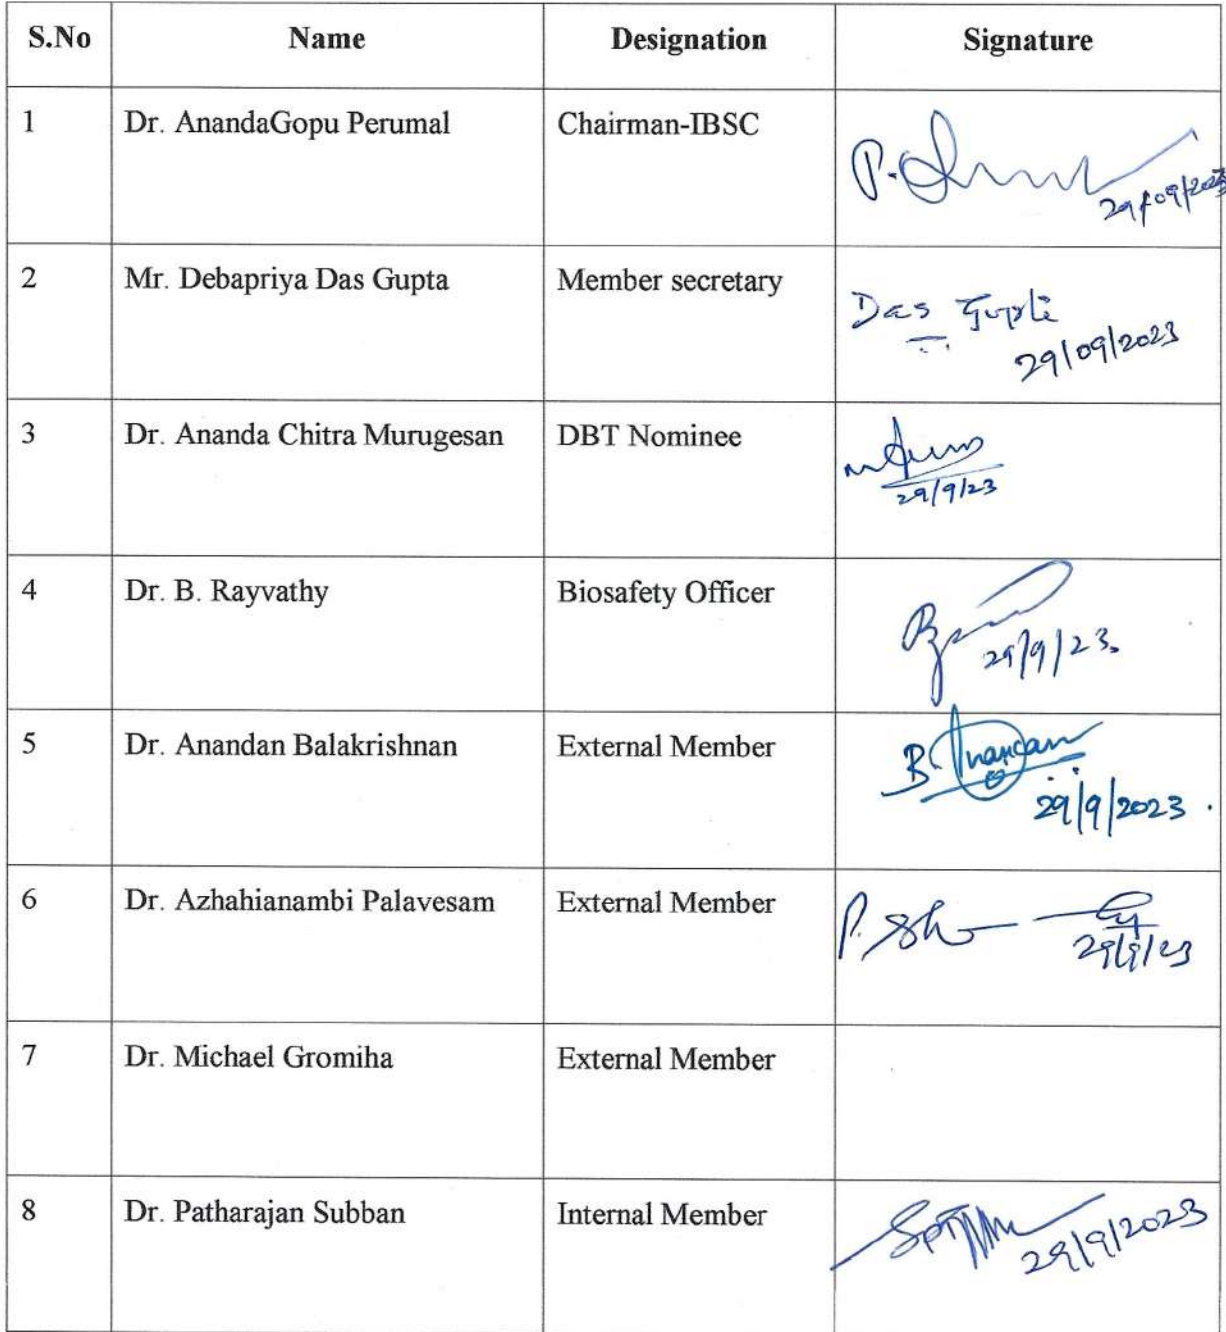 S.No Name Designation Signature
1 Dr. AnandaGopu Perumal Chairman-IBSC
P.
29/09/2023
2 Mr. Debapriya Das Gupta Member secretary
Das Gupta
29/09/2023
3 Dr. Ananda Chitra Murugesan DBT Nominee
29/9/23
4 Dr. B. Rayvathy Biosafety Officer
29/9/23.
5 Dr. Anandan Balakrishnan External Member
B. Anandan
29/9/2023.
6 Dr. Azhahianambi Palavesam External Member
P.
29/9/23
7 Dr. Michael Gromiha External Member
8 Dr. Patharajan Subban Internal Member
29/9/2023